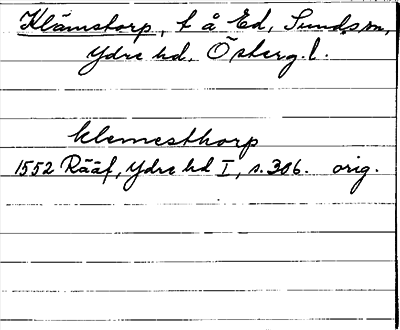 Klämstorp, t å Ed, Sunds sn,
Ydre hd. Österg. l.
klemesthorp
1552 Rääf, Ydre hd I, s. 306. orig.